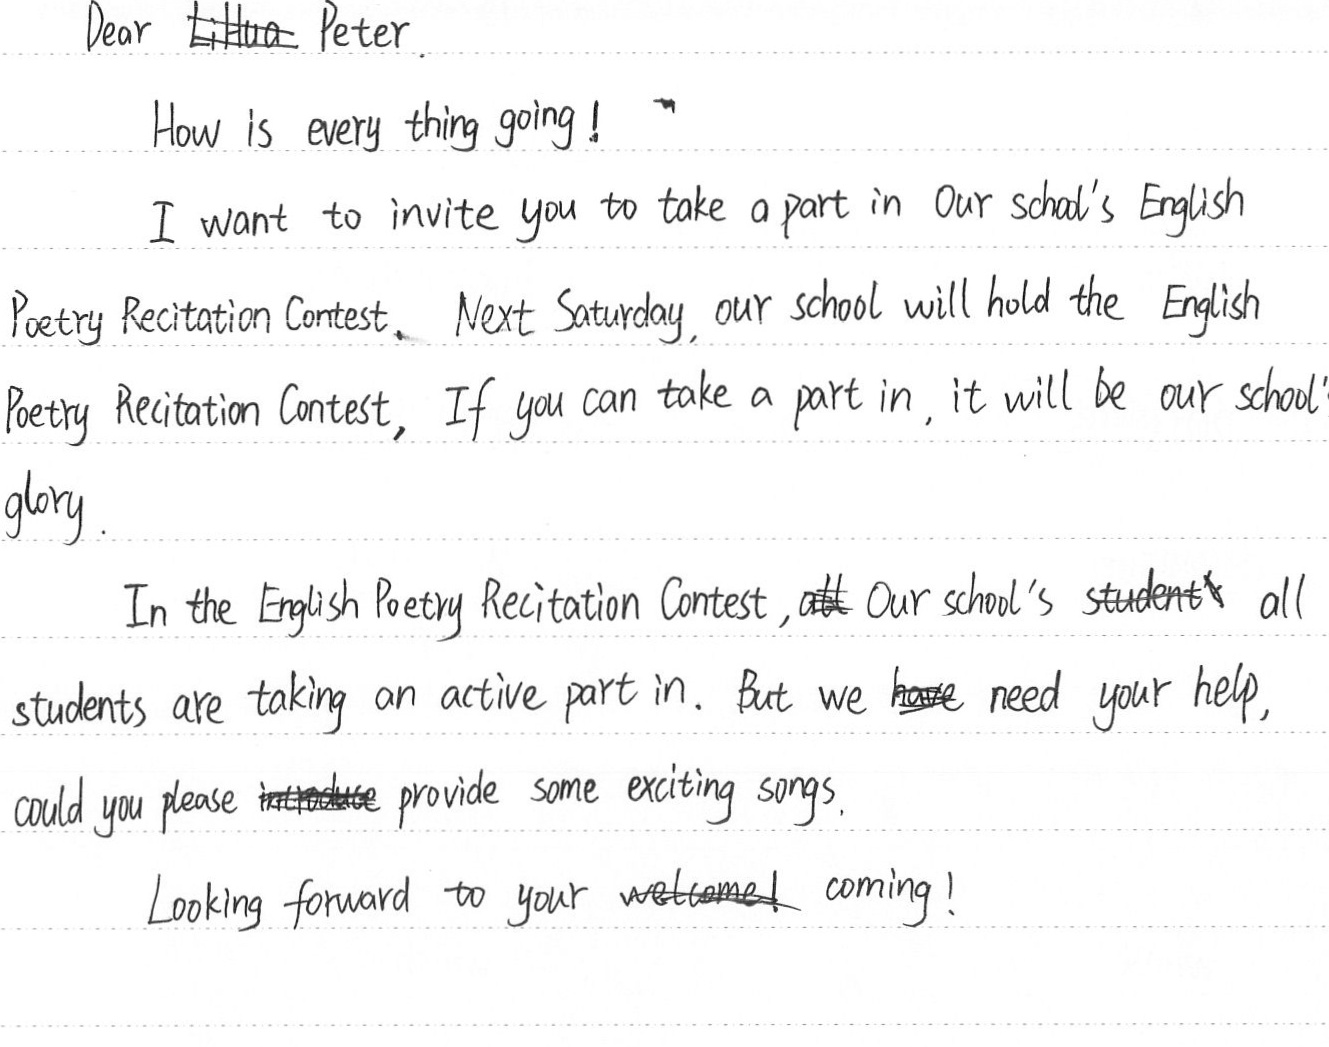 Dear LiHua Peter.
How is every thing going!
I want to invite you to take a part in Our school's English
Poetry Recitation Contest. Next Saturday, our school will hold the English
Poetry Recitation Contest, If you can take a part in, it will be our school'
glory.
In the English Poetry Recitation Contest, all Our school's students all
students are taking an active part in. But we have need your help,
could you please introduce provide some exciting songs.
Looking forward to your welcome! coming!